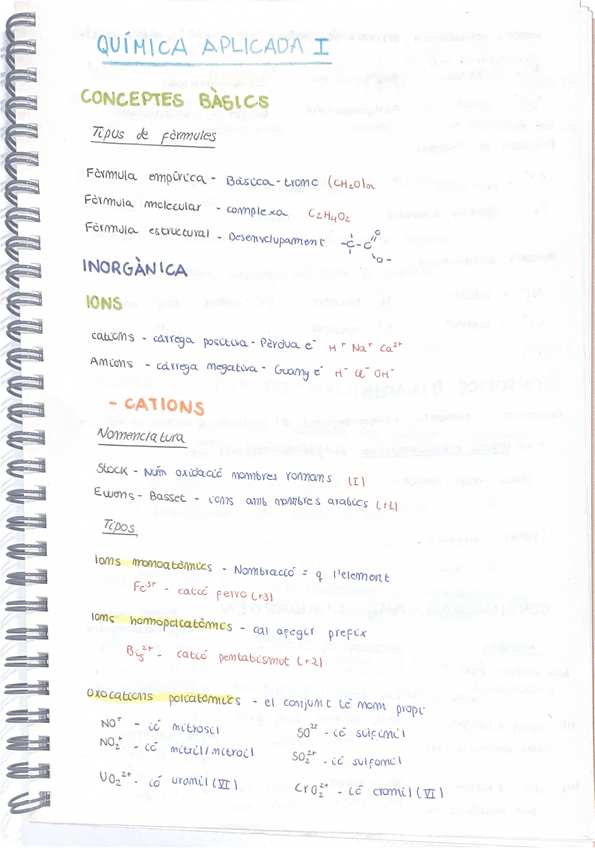 QUÍMICA APLICADA I
CONCEPTES BÀSICS
Tipus de fórmules
Fórmula empírica - Bàsica-tronc (CH₂O)n
Fórmula molecular - complexa C₂H₄O₂
Fórmula estructural - Desenvolupament -C-C O O-
INORGÀNICA
IONS
cations - càrrega positiva - Pèrdua e⁻ H⁺ Na⁺ Ca²⁺
Anions - càrrega negativa - Guany e⁻ H⁻ Cl⁻ OH⁻
- CATIONS
Nomenclatura
Stock - Núm oxidació nombres romans (I)
Ewens-Basset - ions amb nombres arabics (+1)
Tipos
Ions monoatòmics - Nombració = q l'element
Fe³⁺ - catió ferro (+3)
Ions homopoliatòmics - cal afegir prefix
Bi₅²⁺ - catió pentabismut (+2)
Oxocations poliatòmics - el conjunt té nom propi
NO⁺ - ió nitrosil SO²⁺ - ió sulfinil
NO₂⁺ - ió nitril/nitroil SO₂²⁺ - ió sulfonil
UO₂²⁺ - ió uranil (VI) CrO₂²⁺ - ió cromil (VI)